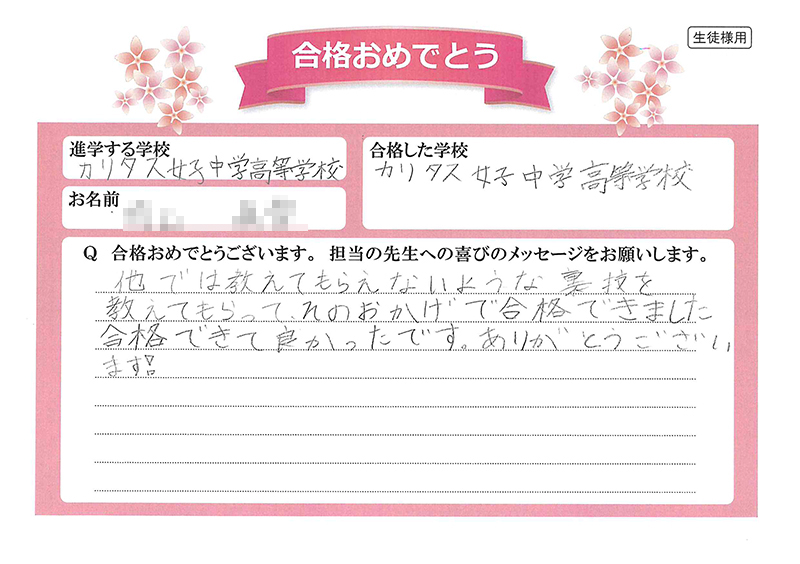 生徒様用
合格おめでとう
進学する学校
カリタス女子中学高等学校
合格した学校
カリタス女子中学高等学校
お名前
Q 合格おめでとうございます。担当の先生への喜びのメッセージをお願いします。
他では教えてもらえないような裏技を
教えてもらって、そのおかげで合格できました
合格できて良かったです。ありがとうござい
ます!!